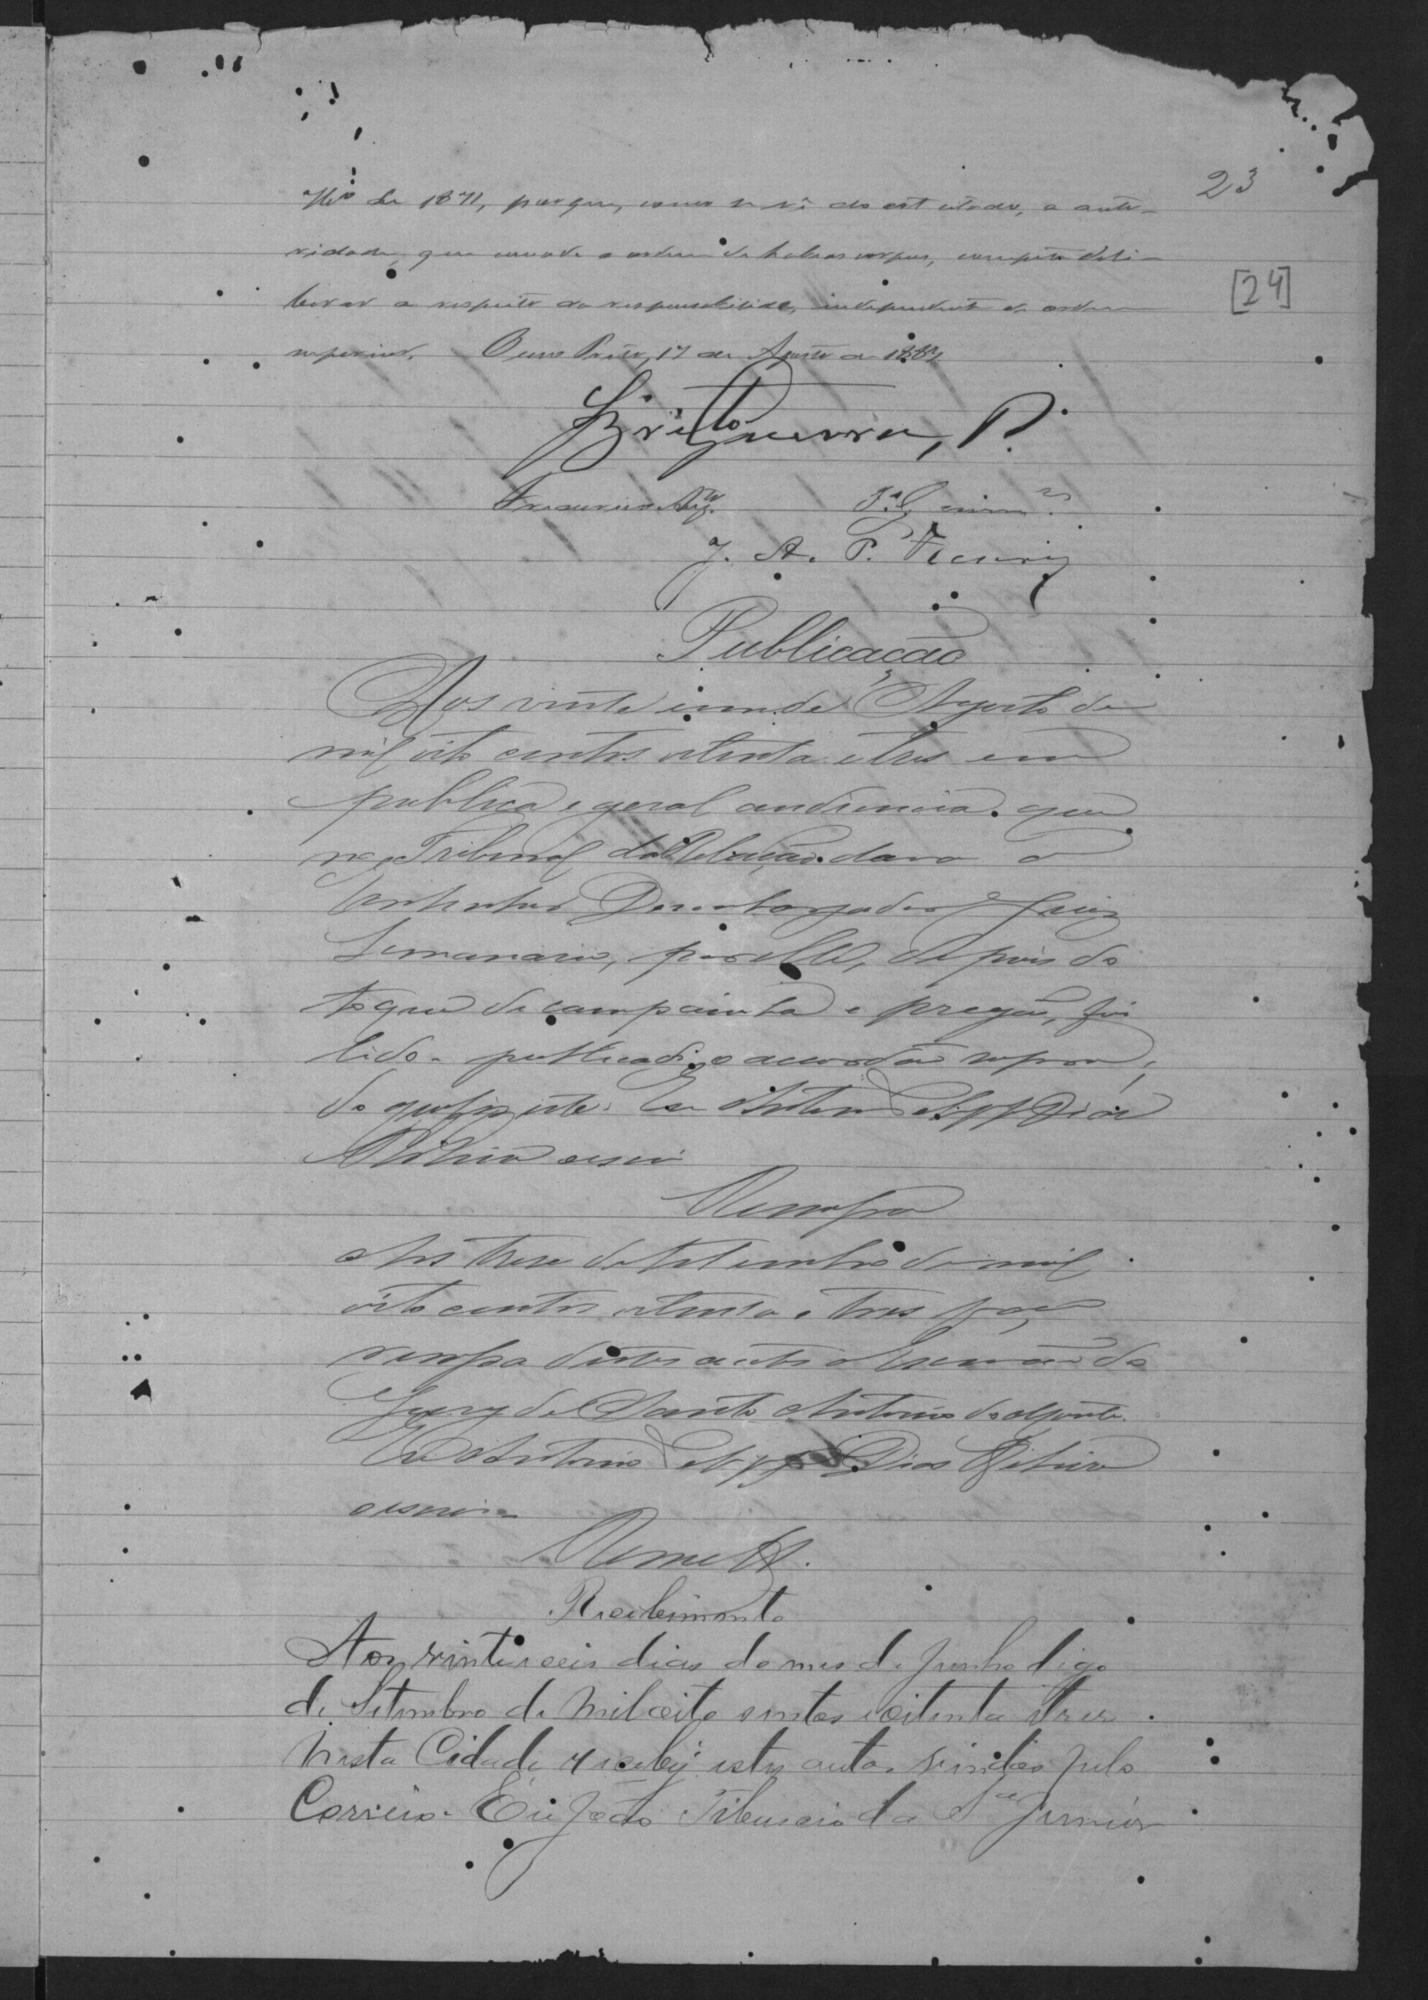 23
[24]
de 1871, porque, como se vê do art citado, a auto-
ridade, que concede a ordem de habeas corpus, compete deli-
berar a respeito da responsabilidade, independente de ordem
superior. Ouro Preto, 17 de Agosto de 1883
Brito Guerra, P.
J. A. P. Fleury
Publicação
Aos vinte e um de Agosto de
mil oito centos oitenta e tres em
publica e geral audiencia que
no Tribunal da Relação dava o
Senhor Desembargador Juiz
Semanario, por elle, depois do
toque de campainha e pregão, foi
lido e publicado o accordão supra;
do que fiz este. Eu Antonio Felippe Dias
Ribeiro escrevi
Remessa
Aos treze de Setembro de mil
oito centos oitenta e tres faço
remessa destes autos ao Escrivão do
Jury de Santo Antonio do Monte.
Eu Antonio Felippe Dias Ribeiro
escrevi
Recebimento
Aos vinte e seis dias do mes de Junho digo
de Setembro de mil oito centos e oitenta e tres
Nesta Cidade recebi estes autos vindos pelo
Correio. Eu João Tiburcio da Sa Junior